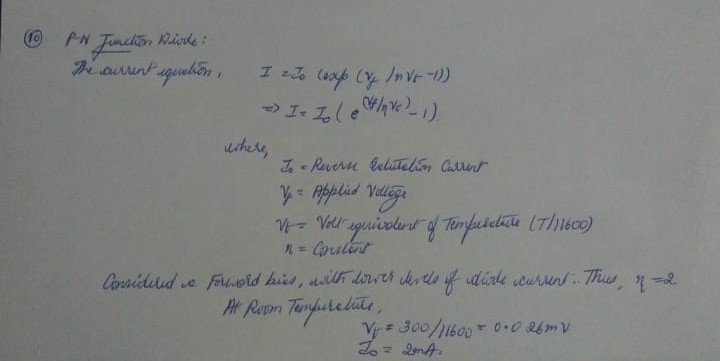 (10) P-N Junction Diode:
The current equation, I = I₀ (exp (Vf / ηVt -1))
=> I = I₀ ( e^(Vf/ηVt) - 1)
where,
I₀ = Reverse Saturation Current
Vf = Applied Voltage
Vt = Volt equivalent of Temperature (T/11600)
η = Constant
Considered a Forward bias, with lower levels of diode current. Thus, η = 2
At Room Temperature,
Vt = 300/11600 = 0.026mV
I₀ = 2mA.